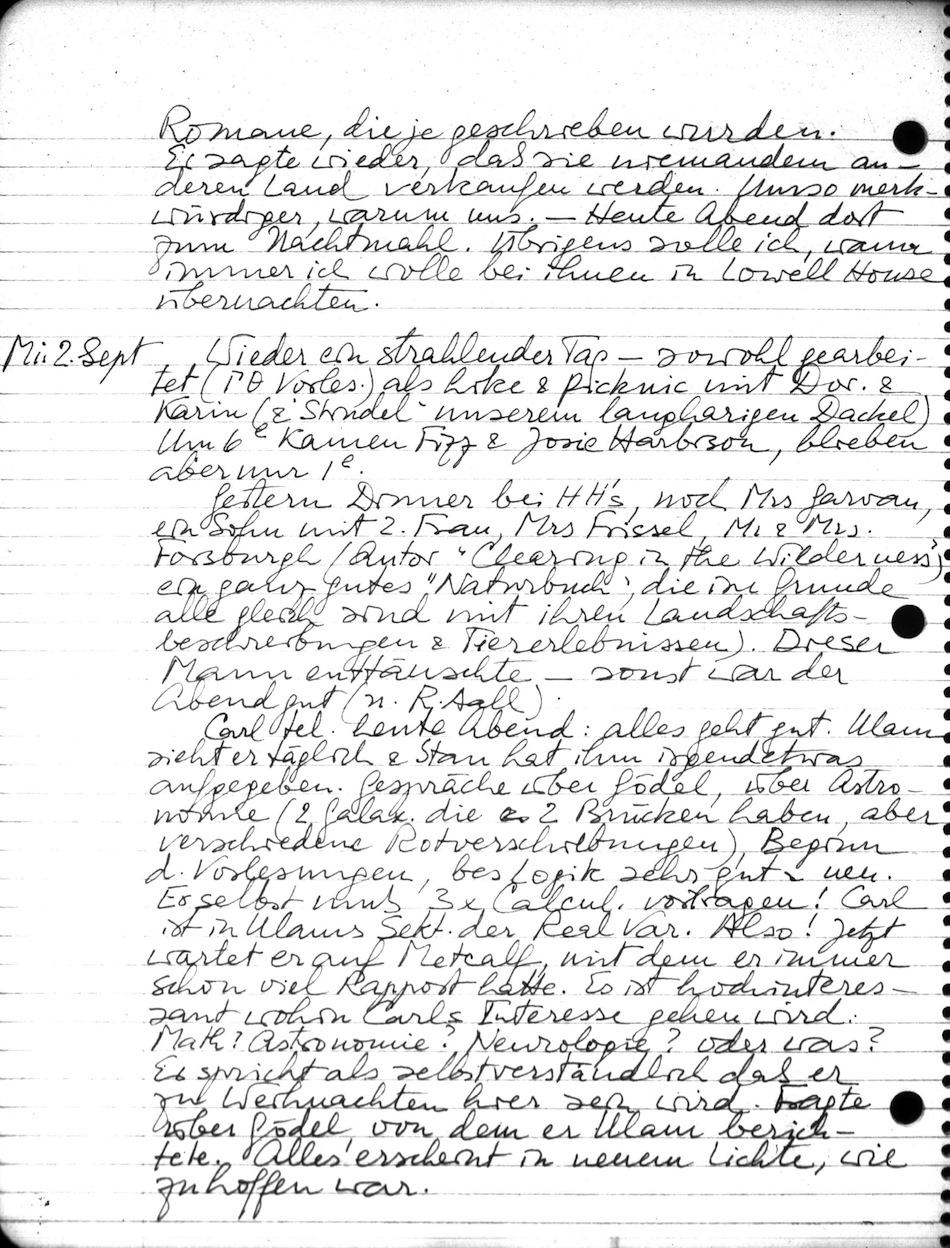 Romane, die je geschrieben wurden.
Er sagte wieder, daß sie niemandem an-
deren Land verkaufen werden. Umso merk-
würdiger, warum uns. – Heute Abend dort
zum Nachtmahl. Übrigens solle ich, wann
immer ich wolle bei ihnen in Lowell House
übernachten.
Mi: 2. Sept Wieder ein strahlender Tag – sowohl gearbei-
tet (Vorles.) als hike & picknic mit Dor. &
Karin (& "Strudel" unserem langharigen Dackel)
Um 6 kamen Fizz & Josie Harbison, blieben
aber nur 1
Gestern Dinner bei HH's, noch Mrs Garvan,
ein Sohn mit 2. Frau, Mrs Frissel, Mr & Mrs.
Forsburgh (Autor "Clearing in the Wilderness",
ein ganz gutes "Naturbuch", die im Grunde
alle gleich sind mit ihren Landschafts-
beschreibungen & Tiererlebnissen). Dieser
Mann enttäuschte – sonst war der
Abend gut (n. R. Aall).
Carl tel. heute Abend: alles geht gut. Ulam
sieht er täglich & Stan hat ihm irgendetwas
aufgegeben. Gespräche über Gödel, über Astro-
nomie (2 Galax. die 2 Brücken haben, aber
verschiedene Rotverschiebungen), Beginn
d. Vorlesungen, bes Logik sehr gut & neu.
Er selbst muß 3x Calcul. vortragen! Carl
ist in Ulams Sekt. der Real Var. Also! Jetzt
wartet er auf Metcalf, mit dem er immer
schon viel Rapport hatte. Es ist hochinteres-
sant wohin Carls Interesse gehen wird:
Math? Astronomie? Neurologie? oder was?
Er spricht als selbstverständlich daß er
zu Weihnachten hier sein wird. Fragte
über Gödel, von dem er Ulam berich-
tete. Alles erscheint in neuem Lichte, wie
zu hoffen war.